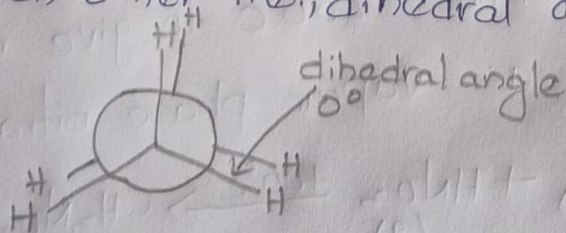 dihedral
H H
dihedral angle
0°
H
H
H
H